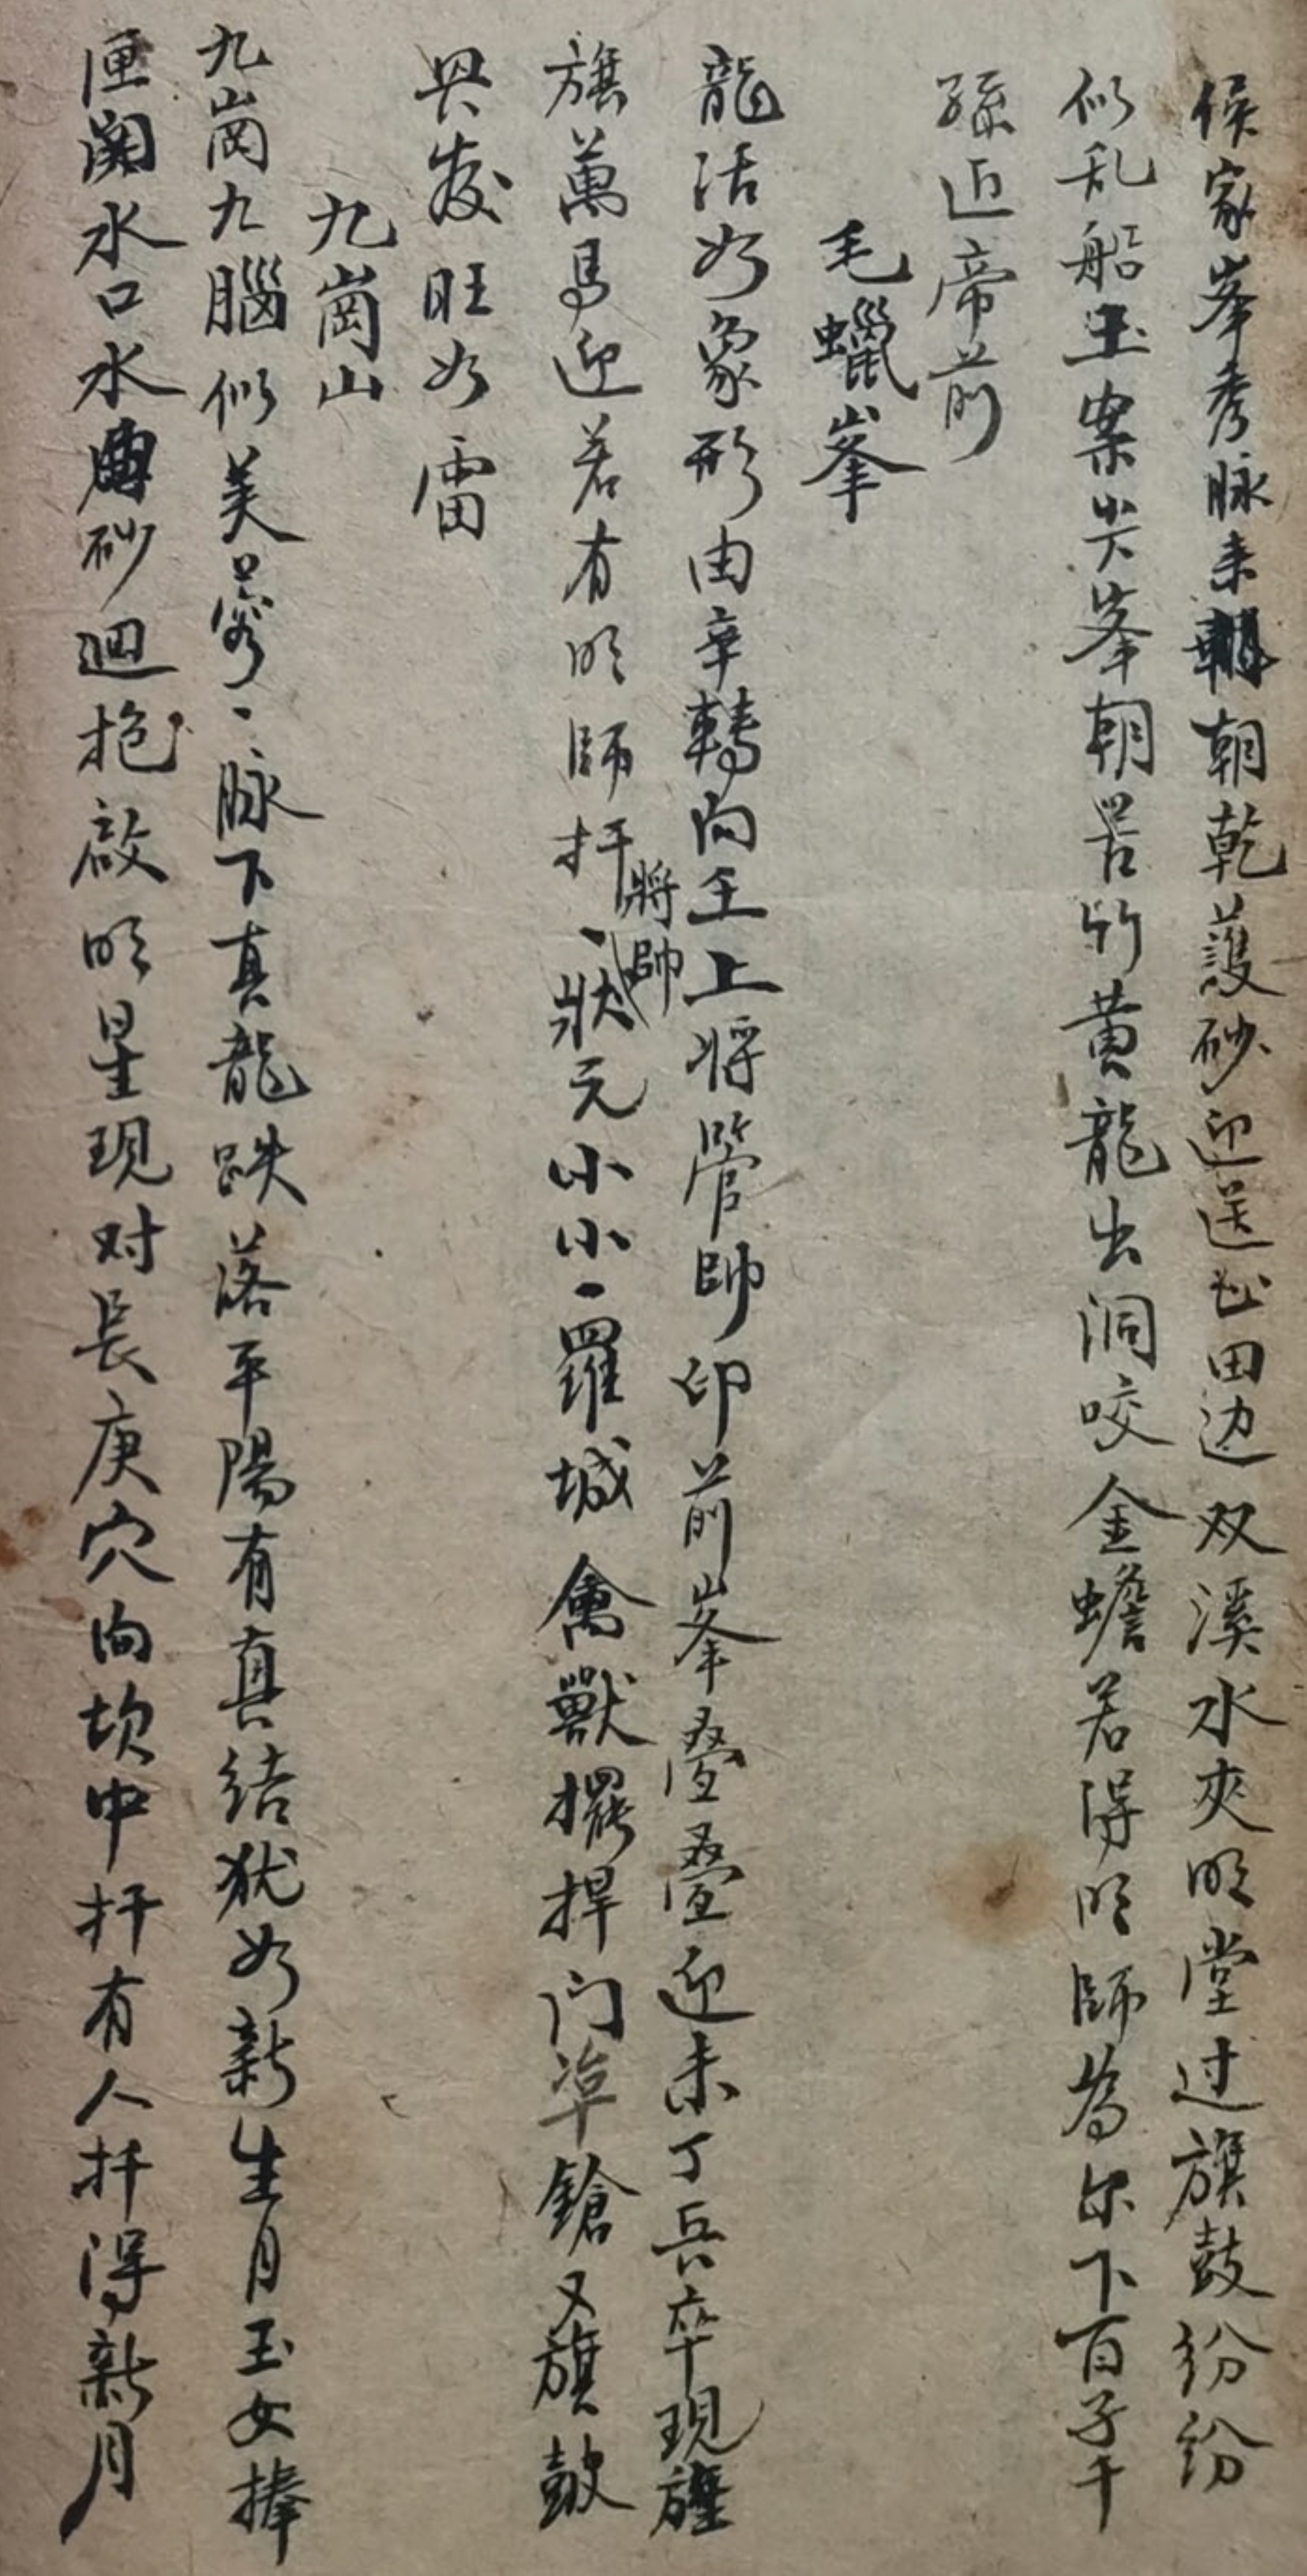 侯家峯秀脉来朝朝乾護砂迎送过田边双溪水夾明堂过旗鼓纷纷
似乱船玉案尖峯朝若竹黄龍出洞咬金蟾若得明師為尔下百子千
孫近帝前
毛蠟峯
龍活如象形由辛轉向壬上将管帥印前峯叠叠迎未丁兵卒現旌
旗萬馬迎若有明師扦將帥狀元小小羅城禽獸擺捍门卓鎗又旗鼓
興发旺如雷
九崗山
九崗九腦似美容脉下真龍跌落平陽有真结狀如新生月玉女捧
匣関水口水砂迴抱啟明星現对長庚穴向坎中扦有人扦得新月